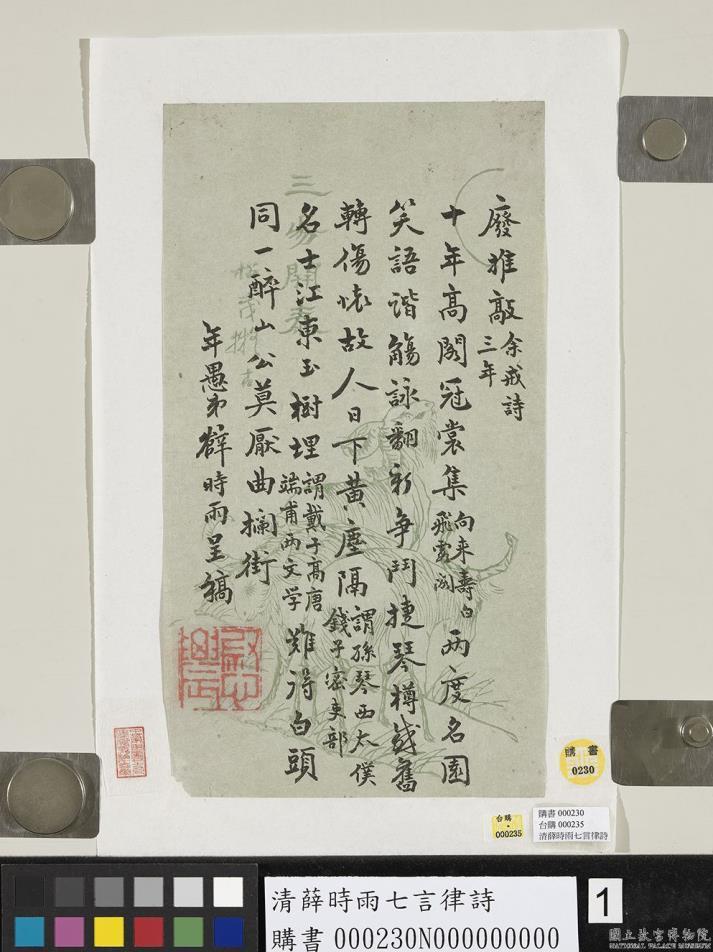 廢推敲 余戒詩
三年
十年高閣冠裳集 向来壽
飛霞閣 兩度名園
笑語諧觴詠翻新爭鬥捷琴樽感舊
轉傷懷故人日下黃塵隔 謂孫琴西太僕
錢子密吏部
名士江東玉樹埋 謂戴子高唐
端甫兩文学 難得白頭
同一醉山公莫厭曲攔街
年愚弟薛時雨呈稿
三昜開泰
購書
0230
台購
000235
購書 000230
台購 000235
清薛時雨七言律詩
清薛時雨七言律詩
購書 000230N000000000
1
國立故宮博物院
NATIONAL PALACE MUSEUM